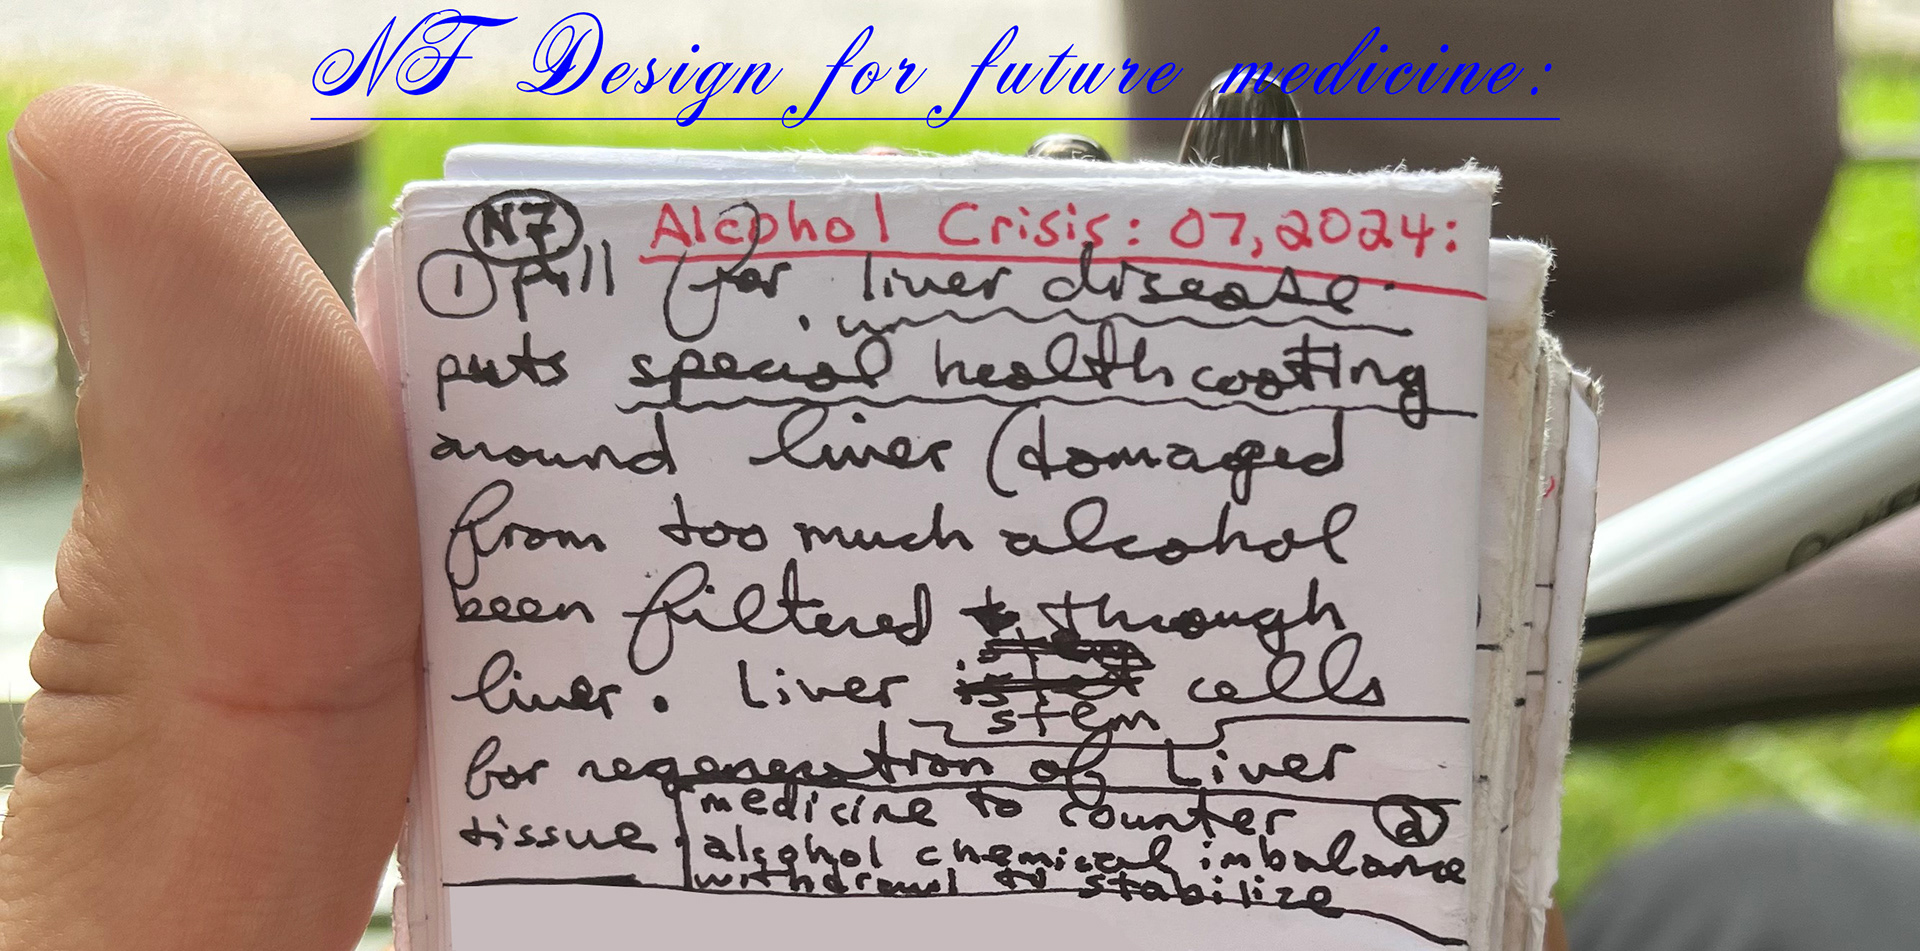 NF Design for future medicine:
N7 Alcohol Crisis: 07,2024:
1 pill for liver disease
puts special health coating
around liver (damaged
from too much alcohol
been filtered through
liver. Liver stem cells
for regeneration of Liver
tissue.
medicine to counter 2
alcohol chemical imbalance
withdrawl to stabilize